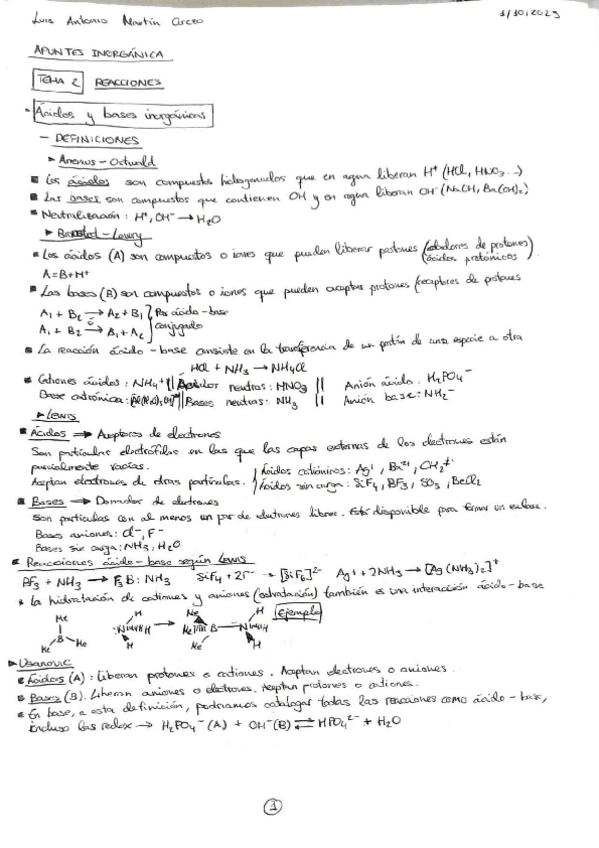 Luis Antonio Martín Orceo
1/10/2023
APUNTES INORGÁNICA
TEMA 2 REACCIONES
- Ácidos y bases inorgánicos
- DEFINICIONES
▸ Arrenius - Ostwald
▪ Los ácidos son compuestos hidrogenados que en agua liberan H⁺ (HCl, HNO₃...)
▪ Las bases son compuestos que contienen OH y en agua liberan OH⁻ (NaOH, Ba(OH)₂)
▪ Neutralización: H⁺, OH⁻ → H₂O
▸ Bronsted - Lowry
▪ Los ácidos (A) son compuestos o iones que pueden liberar protones (dadores de protones)
ácidos protónicos
A = B + H⁺
▪ Las bases (B) son compuestos o iones que pueden aceptar protones (receptores de protones
A₁ + B₂ → A₂ + B₁ } Par ácido-base
A₁ + B₂ → B₁ + A₂ } conjugado
▪ La reacción ácido-base consiste en la transferencia de un protón de una especie a otra
HCl + NH₃ → NH₄Cl
▪ Cationes ácidos: NH₄⁺ || neutros: HNO₃ || Anión ácido: H₂PO₄⁻
Base catiónica: || Bases neutras: NH₃ || Anión base: NH₂⁻
▸ Lewis
▪ Ácidos ⇒ Aceptores de electrones
Son partículas electrófilas en las que las capas externas de los electrones están
parcialmente vacías. Ácidos catiónicos: Ag⁺, Ba²⁺, CH₃⁺
Aceptan electrones de otras partículas. Ácidos sin carga: SiF₄, BF₃, SO₃, BeCl₂
▪ Bases → Donador de electrones
Son partículas con al menos un par de electrones libres. Está disponible para formar un enlace.
Bases aniones: Cl⁻, F⁻
Bases sin carga: NH₃, H₂O
▪ Reacciones ácido-base según Lewis
BF₃ + NH₃ → F₃B:NH₃ SiF₄ + 2F⁻ → [SiF₆]²⁻ Ag⁺ + 2NH₃ → [Ag(NH₃)₂]⁺
* La hidratación de cationes y aniones (solvatación) también es una interacción ácido-base
Ejemplo
Me B Me Me N H H H → Me Me B N H H
▸ Usanovic
▪ Ácidos (A): Liberan protones o cationes. Aceptan electrones o aniones.
▪ Bases (B). Liberan aniones o electrones. Aceptan protones o cationes.
▪ En base, a esta definición, podríamos catalogar todas las reacciones como ácido-base,
incluso las redox → H₂PO₄⁻(A) + OH⁻(B) ⇌ HPO₄²⁻ + H₂O
1